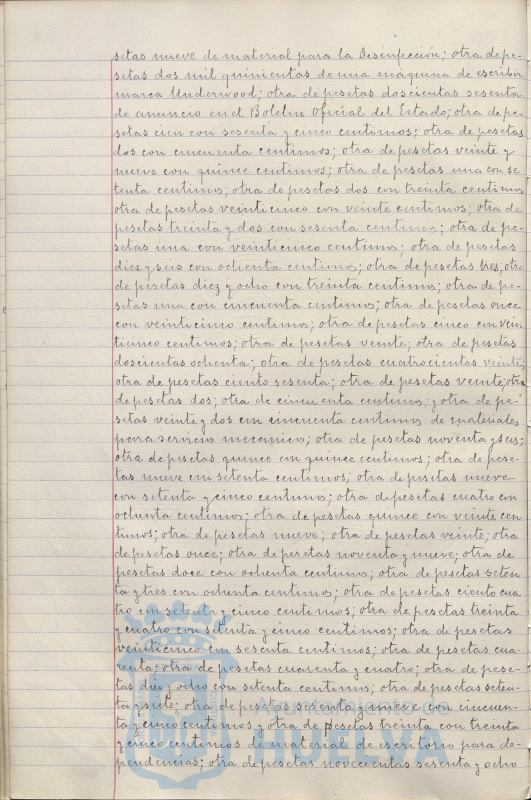 setas nueve de material para la Desinfección; otra de pe-
setas dos mil quinientas de una máquina de escribir
marca Underwood; otra de pesetas doscientas sesenta
de anuncio en el Boletin Oficial del Estado; otra de pe-
setas cien con sesenta y cinco centimos; otra de pesetas
dos con cincuenta centimos; otra de pesetas veinte y
nueve con quince centimos; otra de pesetas una con se-
tenta centimos; otra de pesetas dos con treinta centimos
otra de pesetas veinticinco con veinte centimos; otra de
pesetas treinta y dos con sesenta centimos; otra de pe-
setas una con veinticinco centimos; otra de pesetas
diez y seis con ochenta centimos; otra de pesetas tres; otra
de pesetas diez y ocho con treinta centimos; otra de pe-
setas una con cincuenta centimos; otra de pesetas once
con veinticinco centimos; otra de pesetas cinco con vein
ticinco centimos; otra de pesetas veinte; otra de pesetas
doscientas ochenta; otra de pesetas cuatrocientas veinte;
otra de pesetas ciento sesenta; otra de pesetas veinte; otra
de pesetas dos; otra de cincuenta centimos y otra de pe-
setas veinte y dos con cincuenta centimos de materiales
para servicio mecanico; otra de pesetas noventa y seis;
otra de pesetas quince con quince centimos; otra de pese-
tas nueve con setenta centimos; otra de pesetas nueve
con setenta y cinco centimos; otra de pesetas cuatro con
ochenta centimos; otra de pesetas quince con veinte cen
timos; otra de pesetas nueve; otra de pesetas veinte; otra
de pesetas once; otra de pesetas noventa y nueve; otra de
pesetas doce con ochenta centimos; otra de pesetas seten
ta y tres con ochenta centimos; otra de pesetas ciento cua
tro con setenta y cinco centimos; otra de pesetas treinta
y cuatro con setenta y cinco centimos; otra de pesetas
veinticinco con sesenta centimos; otra de pesetas cua-
renta; otra de pesetas cuarenta y cuatro; otra de pese-
tas diez y ocho con setenta centimos; otra de pesetas seten-
ta y siete; otra de pesetas sesenta y nueve con cincuen-
ta y cinco centimos y otra de pesetas treinta con treinta
y cinco centimos de material de escritorio para de-
pendencias; otra de pesetas novecientas sesenta y ocho